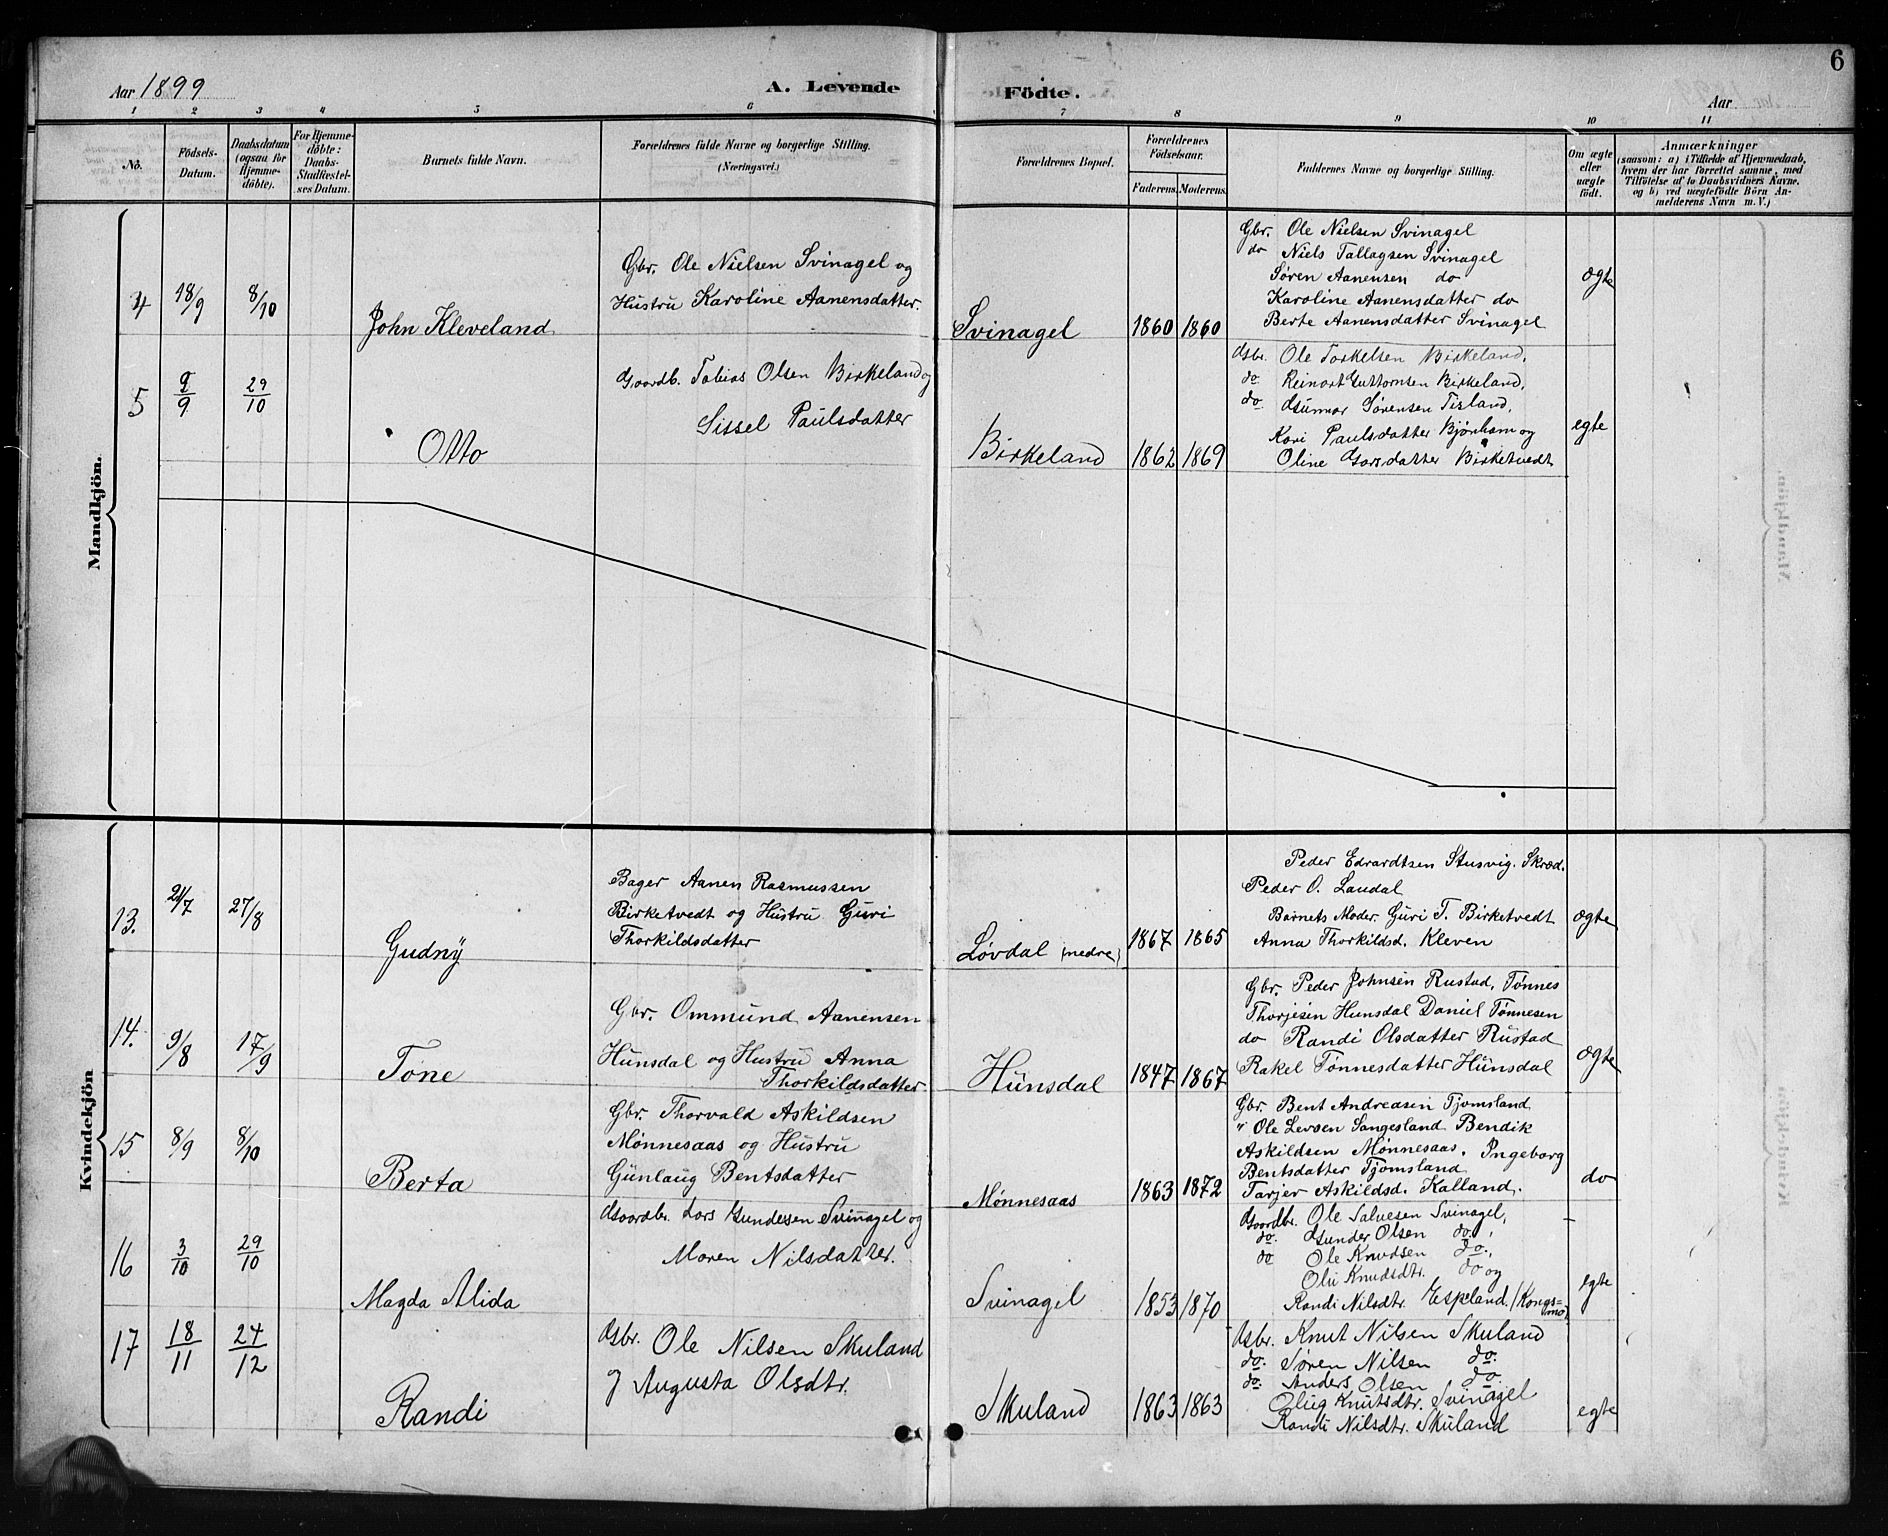 6
Aar 1899
A. Levende Födte.
Aar
1 2 3 4 5 6 7 8 9 10 11
No.
Födsels-
Datum.
Daabsdatum
(ogsaa for
Hjemme-
döbte).
For Hjemme-
döbte:
Daabs-
Stadfæstel-
ses Datum.
Barnets fulde Navn.
Forældrenes fulde Navne og borgerlige Stilling.
(Næringsvei.)
Forældrenes Bopæl.
Forældrenes
Födselsaar.
Faderens. Moderens.
Faddernes Navne og borgerlige Stilling.
Om ægte
eller
uægte
födt.
Anmærkninger
(saasom: a) i Tilfælde af Hjemmedaab,
hvem der har forrettet samme, med
Tilföielse af to Daabsvidners Navne.
og b) ved uægtefödte Börn An-
melderens Navn m. V.)
Mandkjön.
4
18/9
8/10
John Kleveland
Gbr. Ole Nielsen Svinagel og
Hustru Karoline Aanensdatter.
Svinagel
1860 1860
Gbr. Ole Nielsen Svinagel
do Niels Tallagsen Svinagel
Søren Aanensen do
Karoline Aanensdatter do
Berte Aanensdatter Svinagel
ægte
5
9/9
29/10
Otto
Gaardb. Tobias Olsen Birkeland og
Sissel Paulsdatter
Birkeland
1862 1869
Gbr. Ole Torkelsen Birkeland,
do. Reinart Guttormsen Birkeland,
do. Gunnar Sørensen Tisland,
Kari Paulsdatter Bjørham og
Oline Larsdatter Birketvedt
egte
Kvindekjön
13.
21/7
27/8
Gudny
Bager Aanen Rasmussen
Birketvedt og Hustru Guri
Thorkildsdatter
Løvdal (nedre)
1867 1865
Peder Edvardtsen Stusvig. Skræd.
Peder O. Laudal
Barnets Moder. Guri T. Birketvedt
Anna Thorkildsd. Kleven
ægte
14.
9/8
17/9
Tone
Gbr. Ommund Aanensen
Hunsdal og Hustru Anna
Thorkildsdatter
Hunsdal
1847 1867
Gbr. Peder Johnsen Rustad, Tønnes
Thorjesen Hunsdal Daniel Tønnesen
do Randi Olsdatter Rustad
Rakel Tønnesdatter Hunsdal
ægte
15
8/9
8/10
Berta
Gbr. Thorvald Askildsen
Mønnesaas og Hustru
Gunlaug Bentsdatter
Mønnesaas
1863 1872
Gbr. Bent Andreasen Tjomsland
" Ole Levsen Sangesland Bendik
Askildsen Mønnesaas. Ingeborg
Bentsdatter Tjomsland
Tarjer Askildsd. Kalland.
do
16
3/10
29/10
Magda Alida
Gaardbr. Lars Gundersen Svinagel og
Maren Nilsdatter.
Svinagel
1853 1870
Gaardbr. Ole Salvesen Svinagel,
do. Gunder Olsen do.,
do Ole Knudsen do.,
Olu Knudsdtr. do og
Randi Nilsdtr. Espland. (Kongs=
mo)
egte
17
18/11
24/12
Randi
Gbr. Ole Nilsen Skuland
og Augusta Olsdtr.
Skuland
1863 1863
Gbr. Knut Nilsen Skuland
do. Søren Nilsen do.
do. Anders Olsen do.
Olug Knutsdtr. Svinagel
Randi Nilsdtr. Skuland
egte